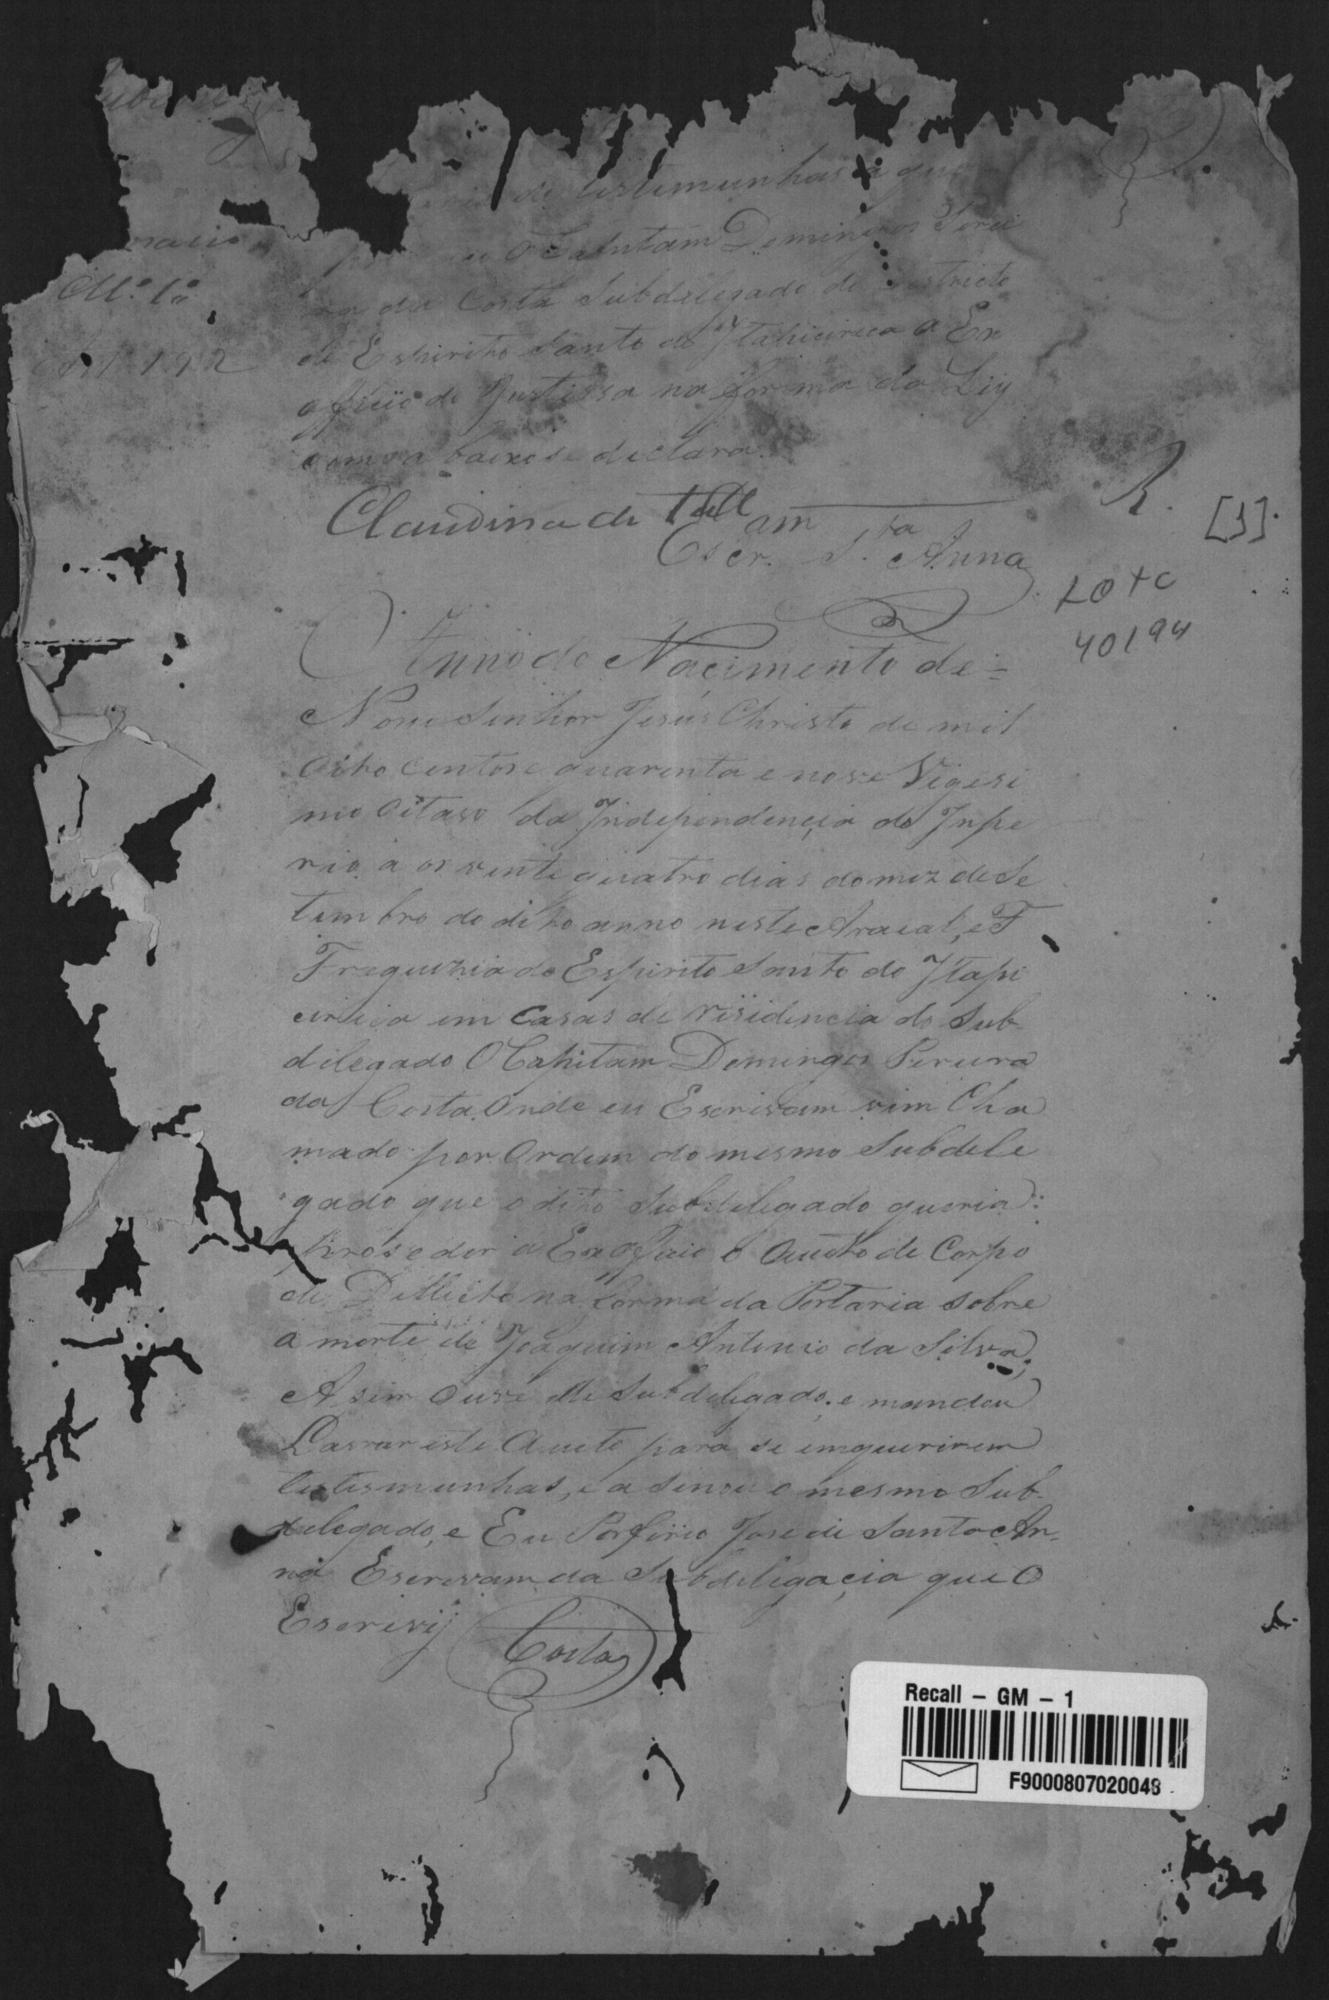 de testemunhas a que
O Capitam Domingos Perei
ra da Costa Subdelegado do Destricto
do Espirito Santo da Itapicirica a Ex
officio de Justissa na forma da Ley
como a baixo se declara.
Mº 1º
192
Claudina de
Escr. S.ta Anna
R.
[1].
Lote
40194
Anno do Nacimento de=
Noso Senhor Jesus Christo de mil
Oito Centos e quarenta e nove Vigesi
mo Oitavo da Independencia do Inpe
rio a os vinte quatro dias do mez de Se
tembro do dito anno neste Araial, e F
Freguezia do Espirito Santo do Itapi
cirica em Casas de risidencia do Sub
dilegado O Capitam Domingos Pereira
da Costa Onde eu Escrivam vim Cha
mado por Ordem do mesmo Subdele
gado que o dito Subdilegado queria:
proseder a Exofficio o Auto de Corpo
de Dellicto na forma da Portaria sobre
a morte de Joaquim Antonio da Silva,
Asim ouve elle Subdelegado, e mandou
Lavrar este Aucto para se imquerirem
testemunhas, e asinou o mesmo Sub-
delegado, e Eu Porfirio Jose de Santa An-
na Escrivam da Subdeligacia que O
Escrivij
Costa
Recall - GM - 1
F9000807020048